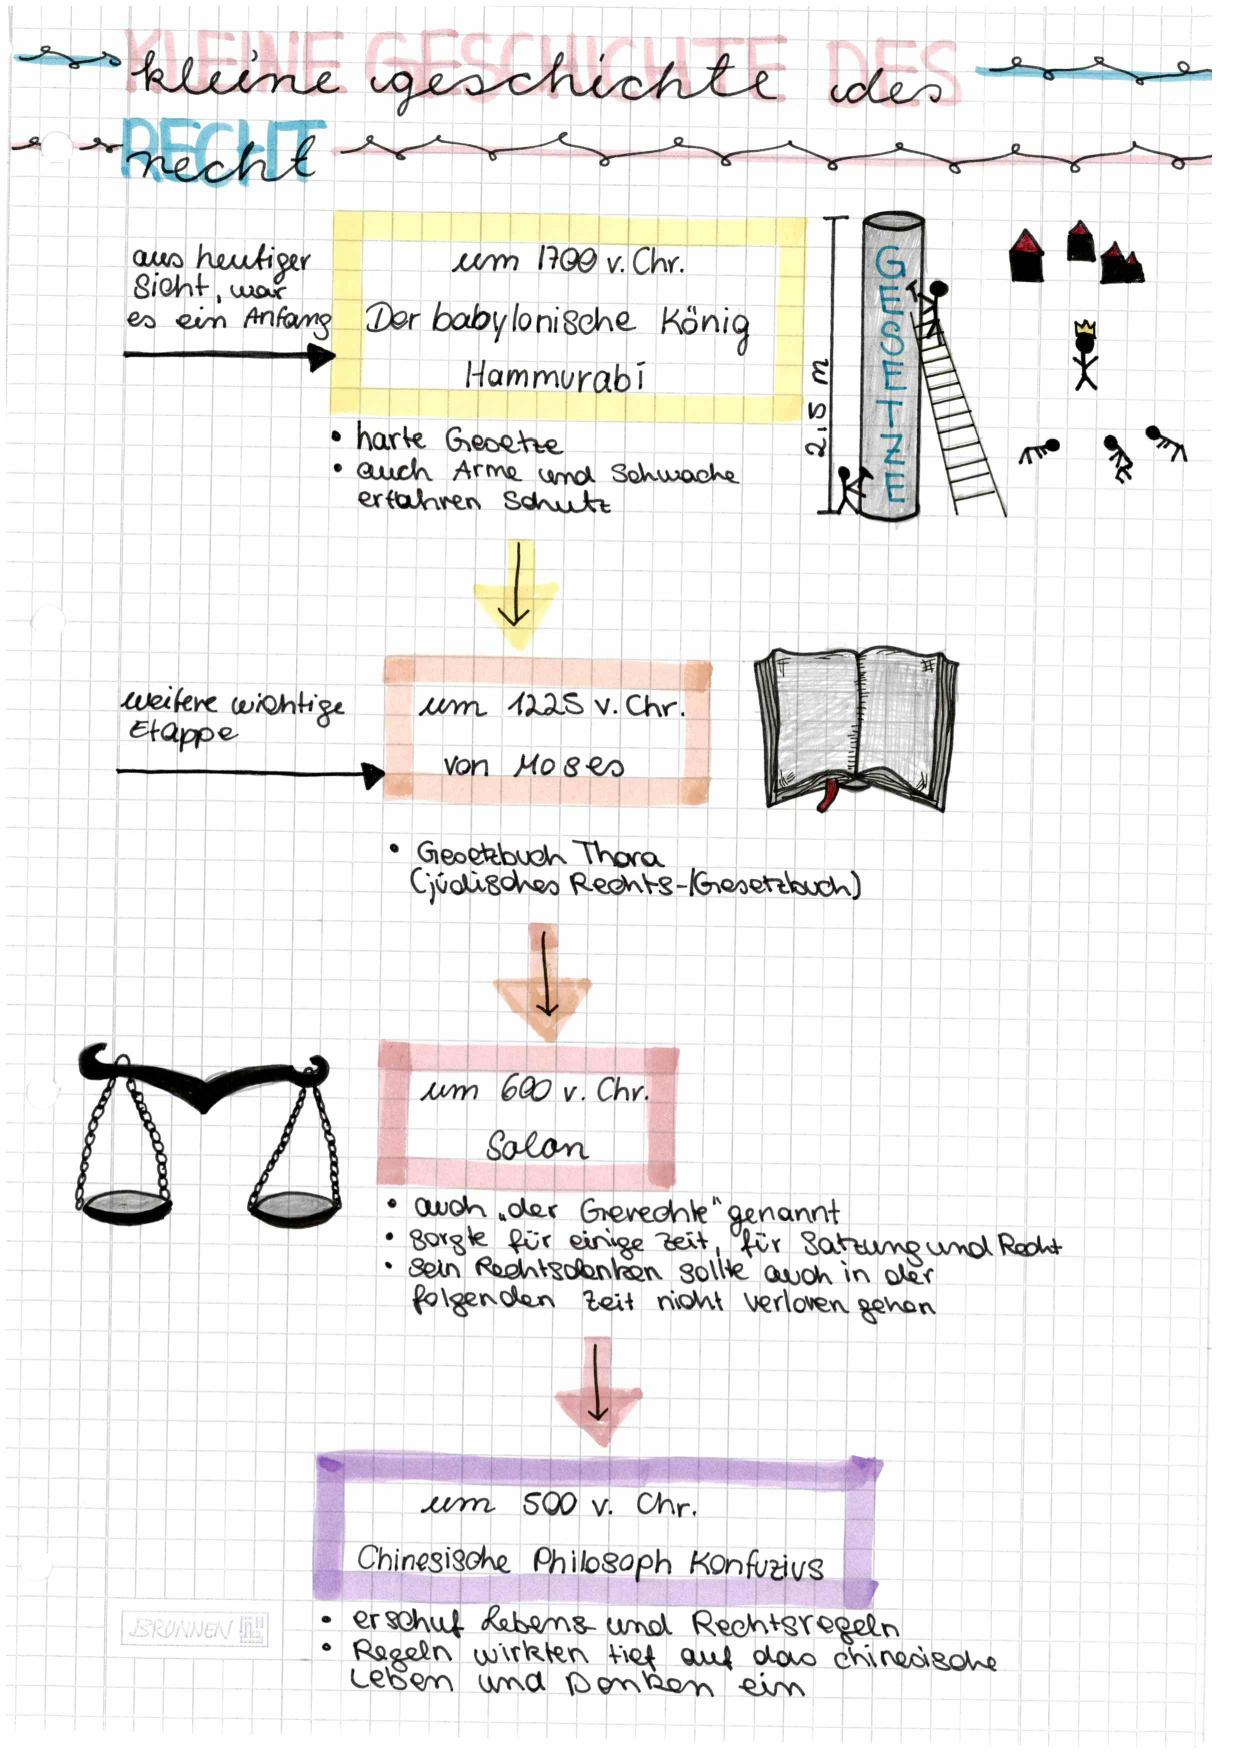 KLEINE GESCHICHTE DES
kleine geschichte des
RECHT
recht
aus heutiger
Sicht, war
es ein Anfang
um 1700 v. Chr.
Der babylonische König
Hammurabi
• harte Gesetze
• auch Arme und Schwache
erfahren Schutz
2,5 m
GESETZE
weitere wichtige
Etappe
um 1225 v. Chr.
von Moses
• Gesetzbuch Thora
(jüdisches Rechts-/Gesetzbuch)
um 600 v. Chr.
Solon
• auch „der Gerechte" genannt
• sorgte für einige Zeit, für Satzung und Recht
• sein Rechtsdenken sollte auch in der
folgenden Zeit nicht verloren gehen
um 500 v. Chr.
Chinesische Philosoph Konfuzius
• erschuf Lebens und Rechtsregeln
• Regeln wirkten tief auf das chinesische
Leben und Denken ein
BRUNNEN